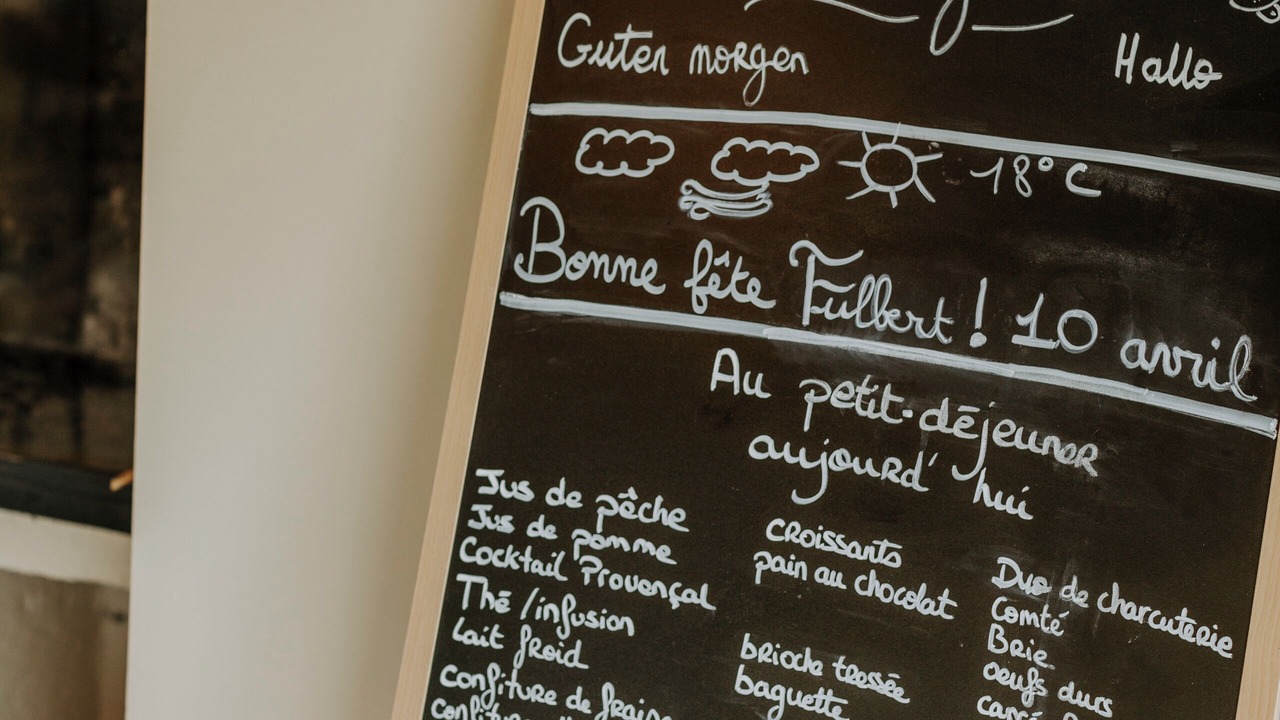 Guten morgen
Hallo
18°C
Bonne fête Fulbert! 10 avril
Au petit-déjeuner
aujourd'hui
Jus de pêche
Jus de pomme
Cocktail Provençal
Thé/infusion
Lait froid
Confiture de
croissants
pain au chocolat
brioche tressée
baguette
Duo de charcuterie
Comté
Brie
oeufs durs